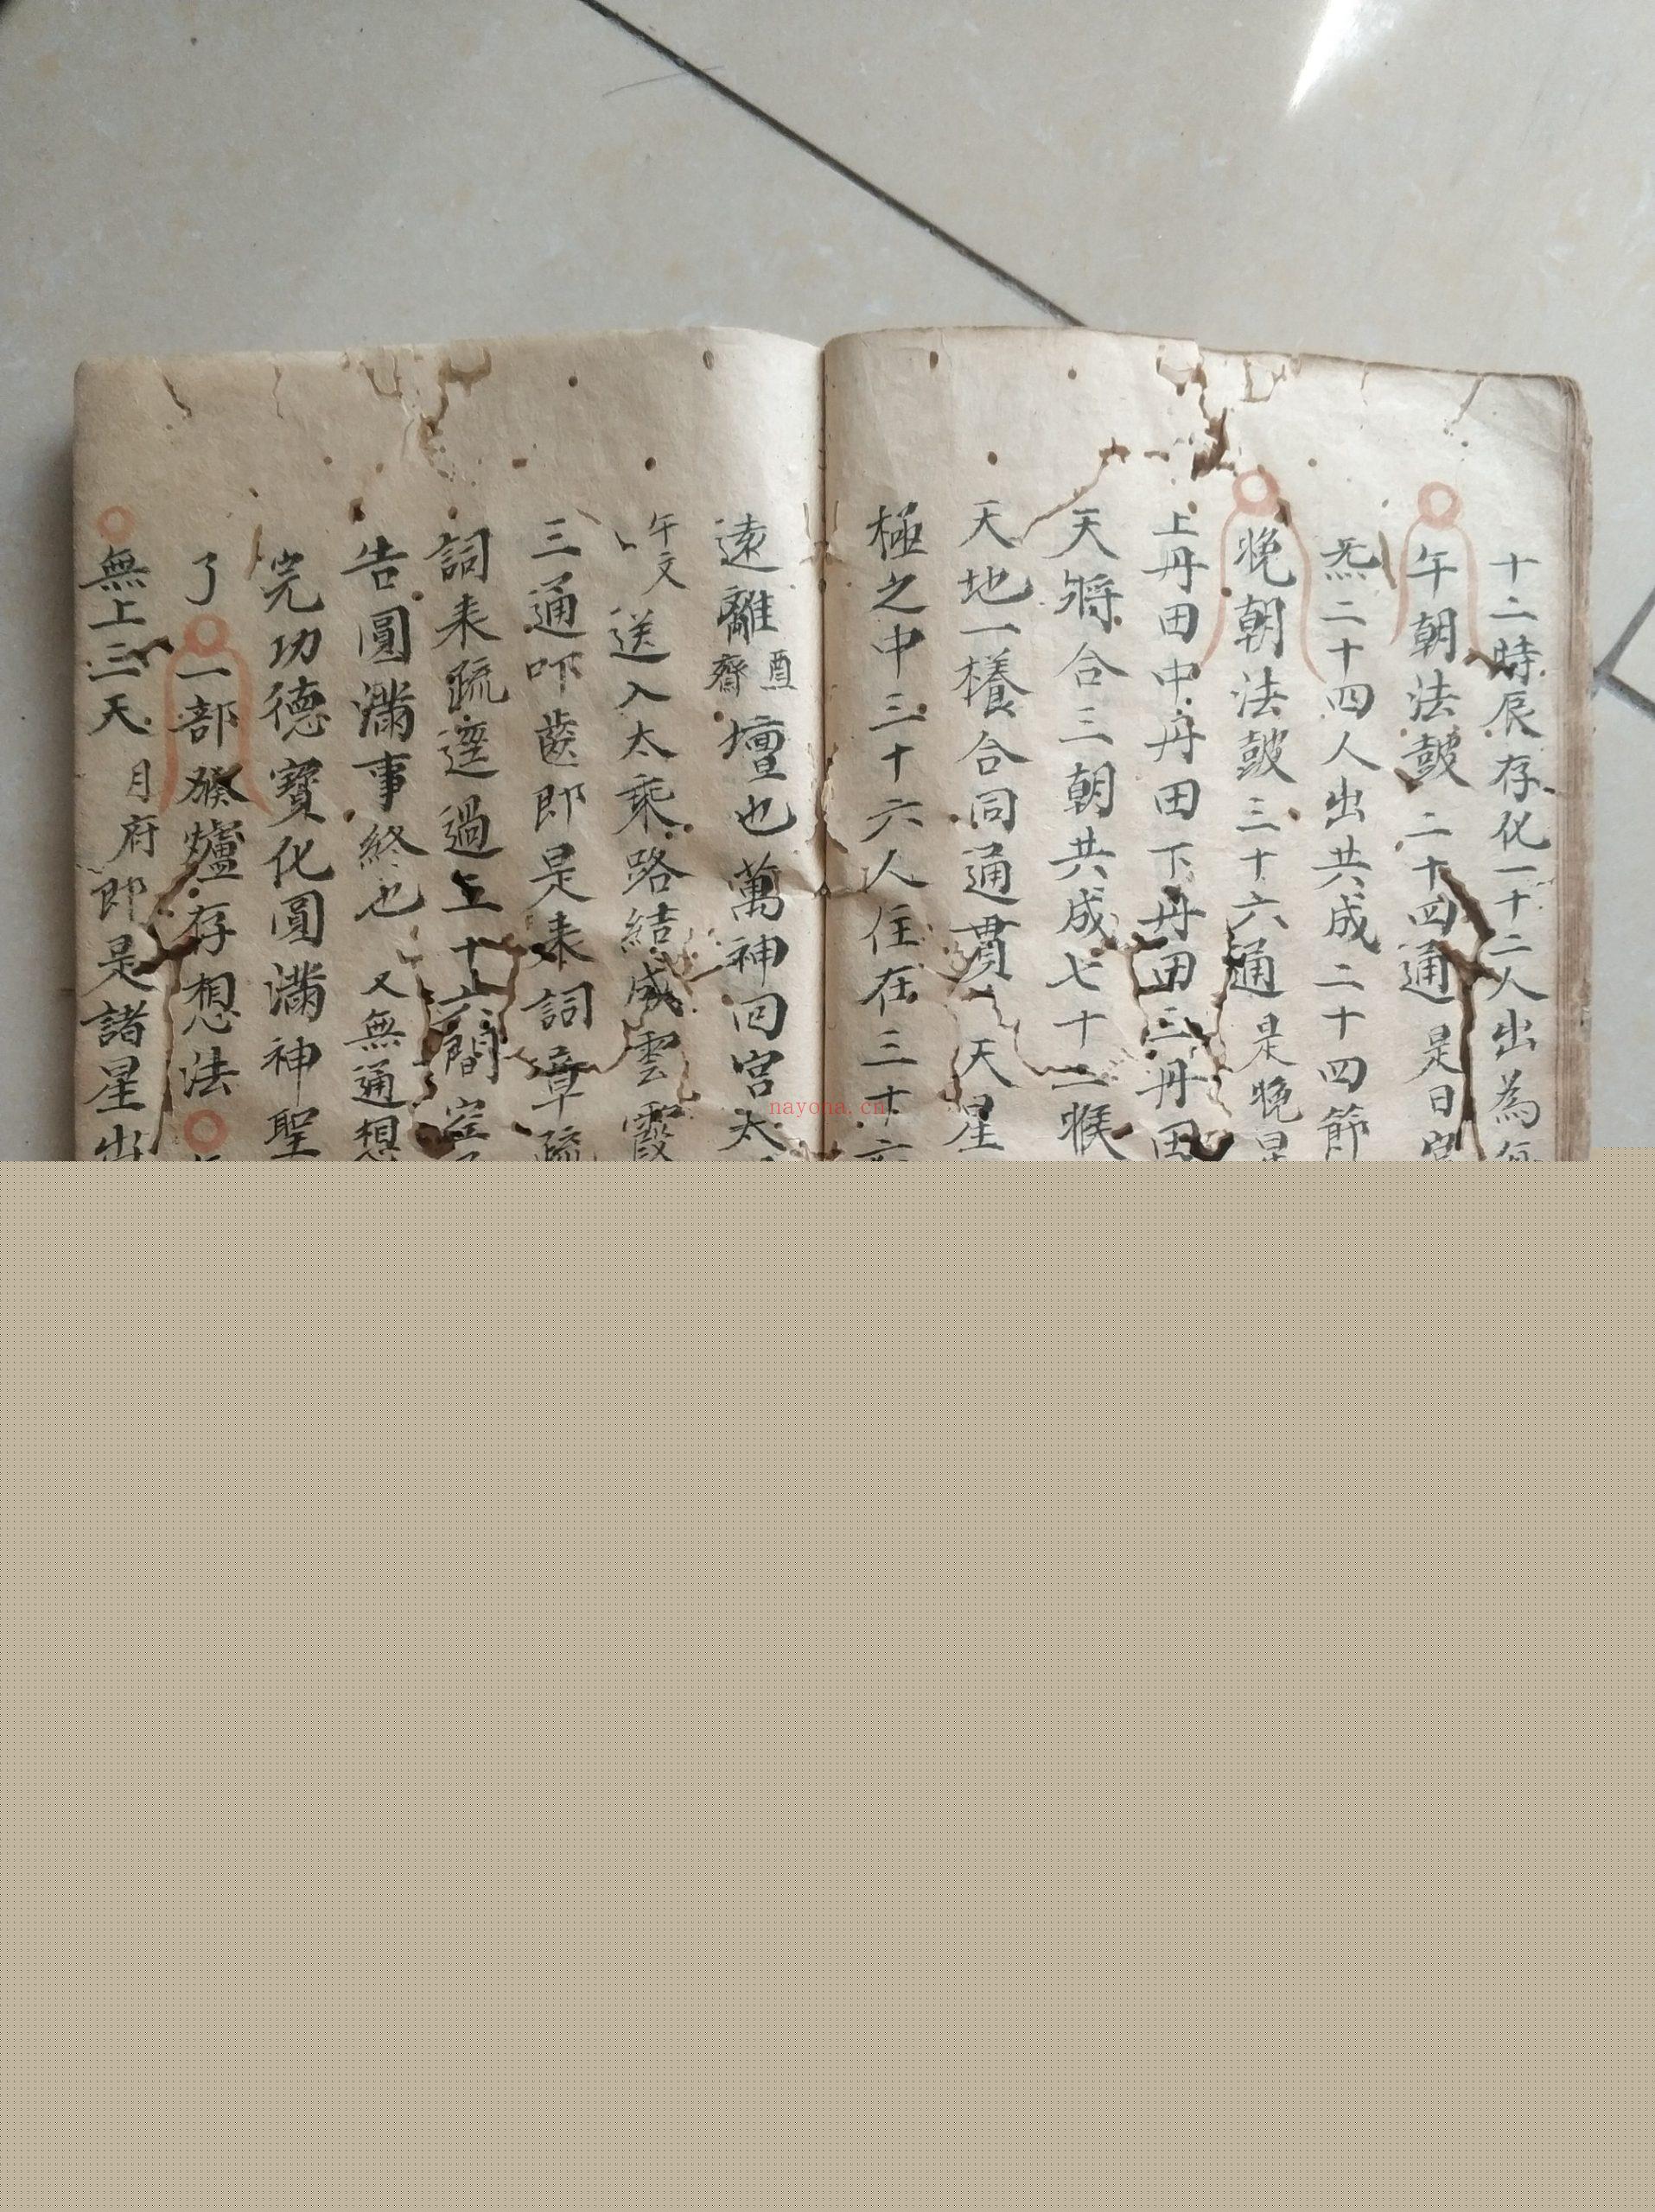 十二時辰存化一十二人出為
午朝法鼓二十四通是日宫
炁二十四人出共成二十四節
晚朝法鼓三十六通是晚星
上丹田中丹田下丹田三丹田
天將合三朝共成七十二候
天地一樣合同通貫天星
極之中三十六人住在三十六
遠離酉齋壇也萬神回宮太
午文送入太乘路結成雲霞
三通叩齒即是来詞章疏
詞来疏達過上十六間
告圓滿事終也又無通想
完功德寶化圓滿神聖
了一部發爐存想法
無上三天月府郎是諸星出
nayona.cn